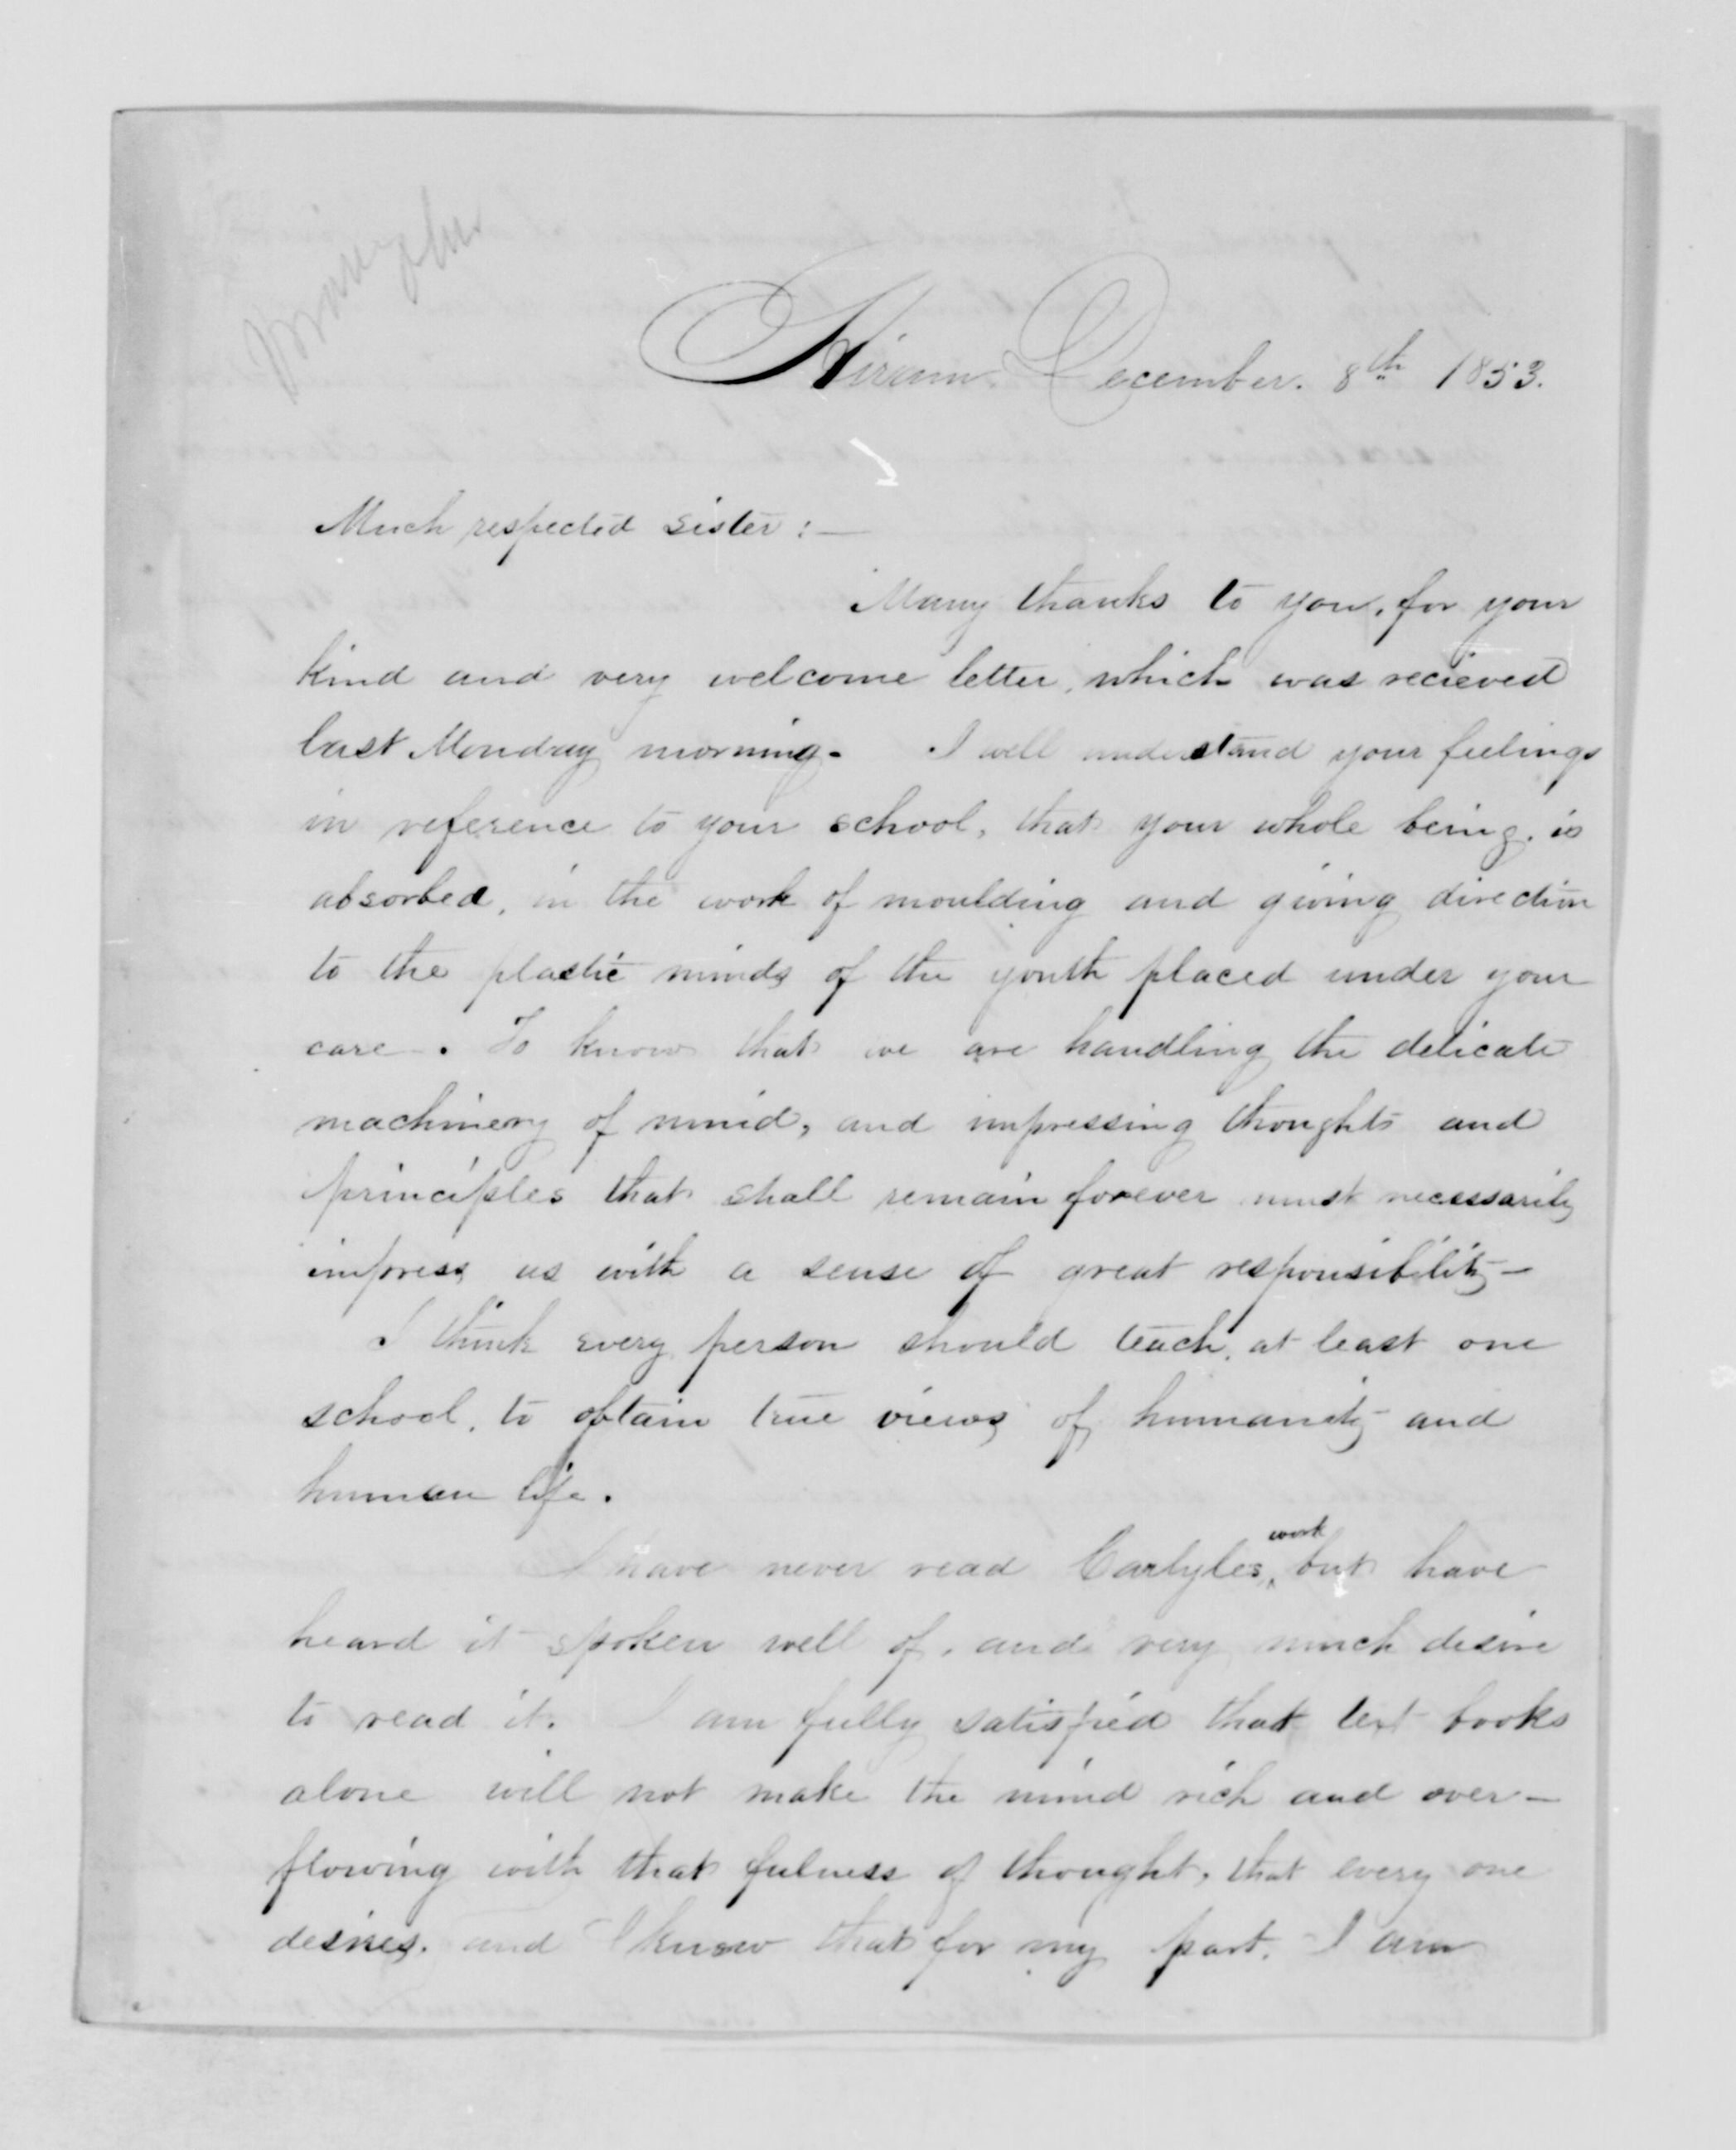 Hiram. December. 8th 1853.
Much respected sister :—
Many thanks to you, for your
kind and very welcome letter, which was recieved
last Monday morning. I well understand your feelings
in reference to your school, that your whole being, is
absorbed, in the work of moulding and giving direction
to the plastic minds of the youth placed under your
care. To know that we are handling the delicate
machinery of mind, and impressing thoughts and
principles that shall remain forever must necessarily
impress us with a sense of great responsibility—
I think every person should teach, at least one
school, to obtain true views of humanity and
human life.
work
I have never read Carlyles, but have
heard it spoken well of, and very much desire
to read it. I am fully satisfied that text books
alone will not make the mind rich and over-
flowing with that fulness of thought, that every one
desires. and I know that for my part, I am